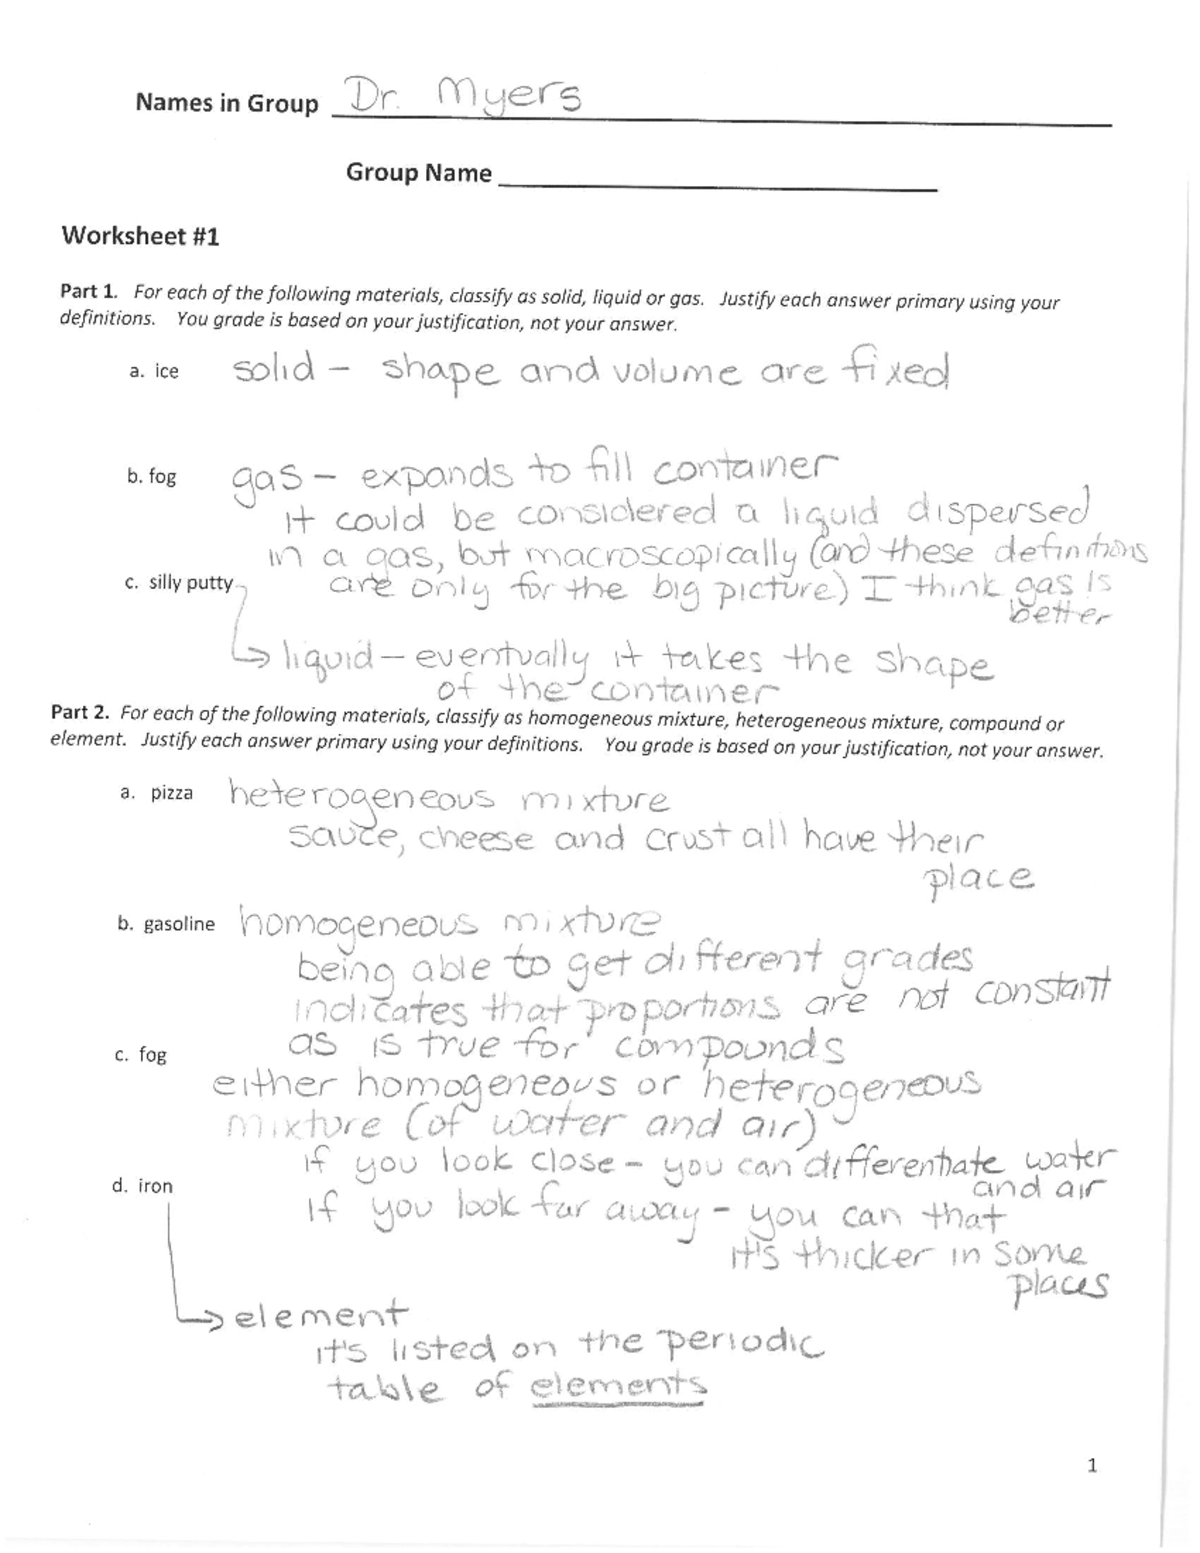 Names in Group Dr. Myers
Group Name
Worksheet #1
Part 1. For each of the following materials, classify as solid, liquid or gas. Justify each answer primary using your
definitions. You grade is based on your justification, not your answer.
a. ice solid - shape and volume are fixed
b. fog gas - expands to fill container
it could be considered a liquid dispersed
in a gas, but macroscopically (and these definitions
are only for the big picture) I think gas is
better
c. silly putty
liquid - eventually it takes the shape
of the container
Part 2. For each of the following materials, classify as homogeneous mixture, heterogeneous mixture, compound or
element. Justify each answer primary using your definitions. You grade is based on your justification, not your answer.
a. pizza heterogeneous mixture
sauce, cheese and crust all have their
place
b. gasoline homogeneous mixture
being able to get different grades
indicates that proportions are not constant
as is true for compounds
c. fog
either homogeneous or heterogeneous
mixture (of water and air)
if you look close - you can differentiate water
and air
if you look far away - you can that
it's thicker in some
places
d. iron
element
it's listed on the periodic
table of elements
1